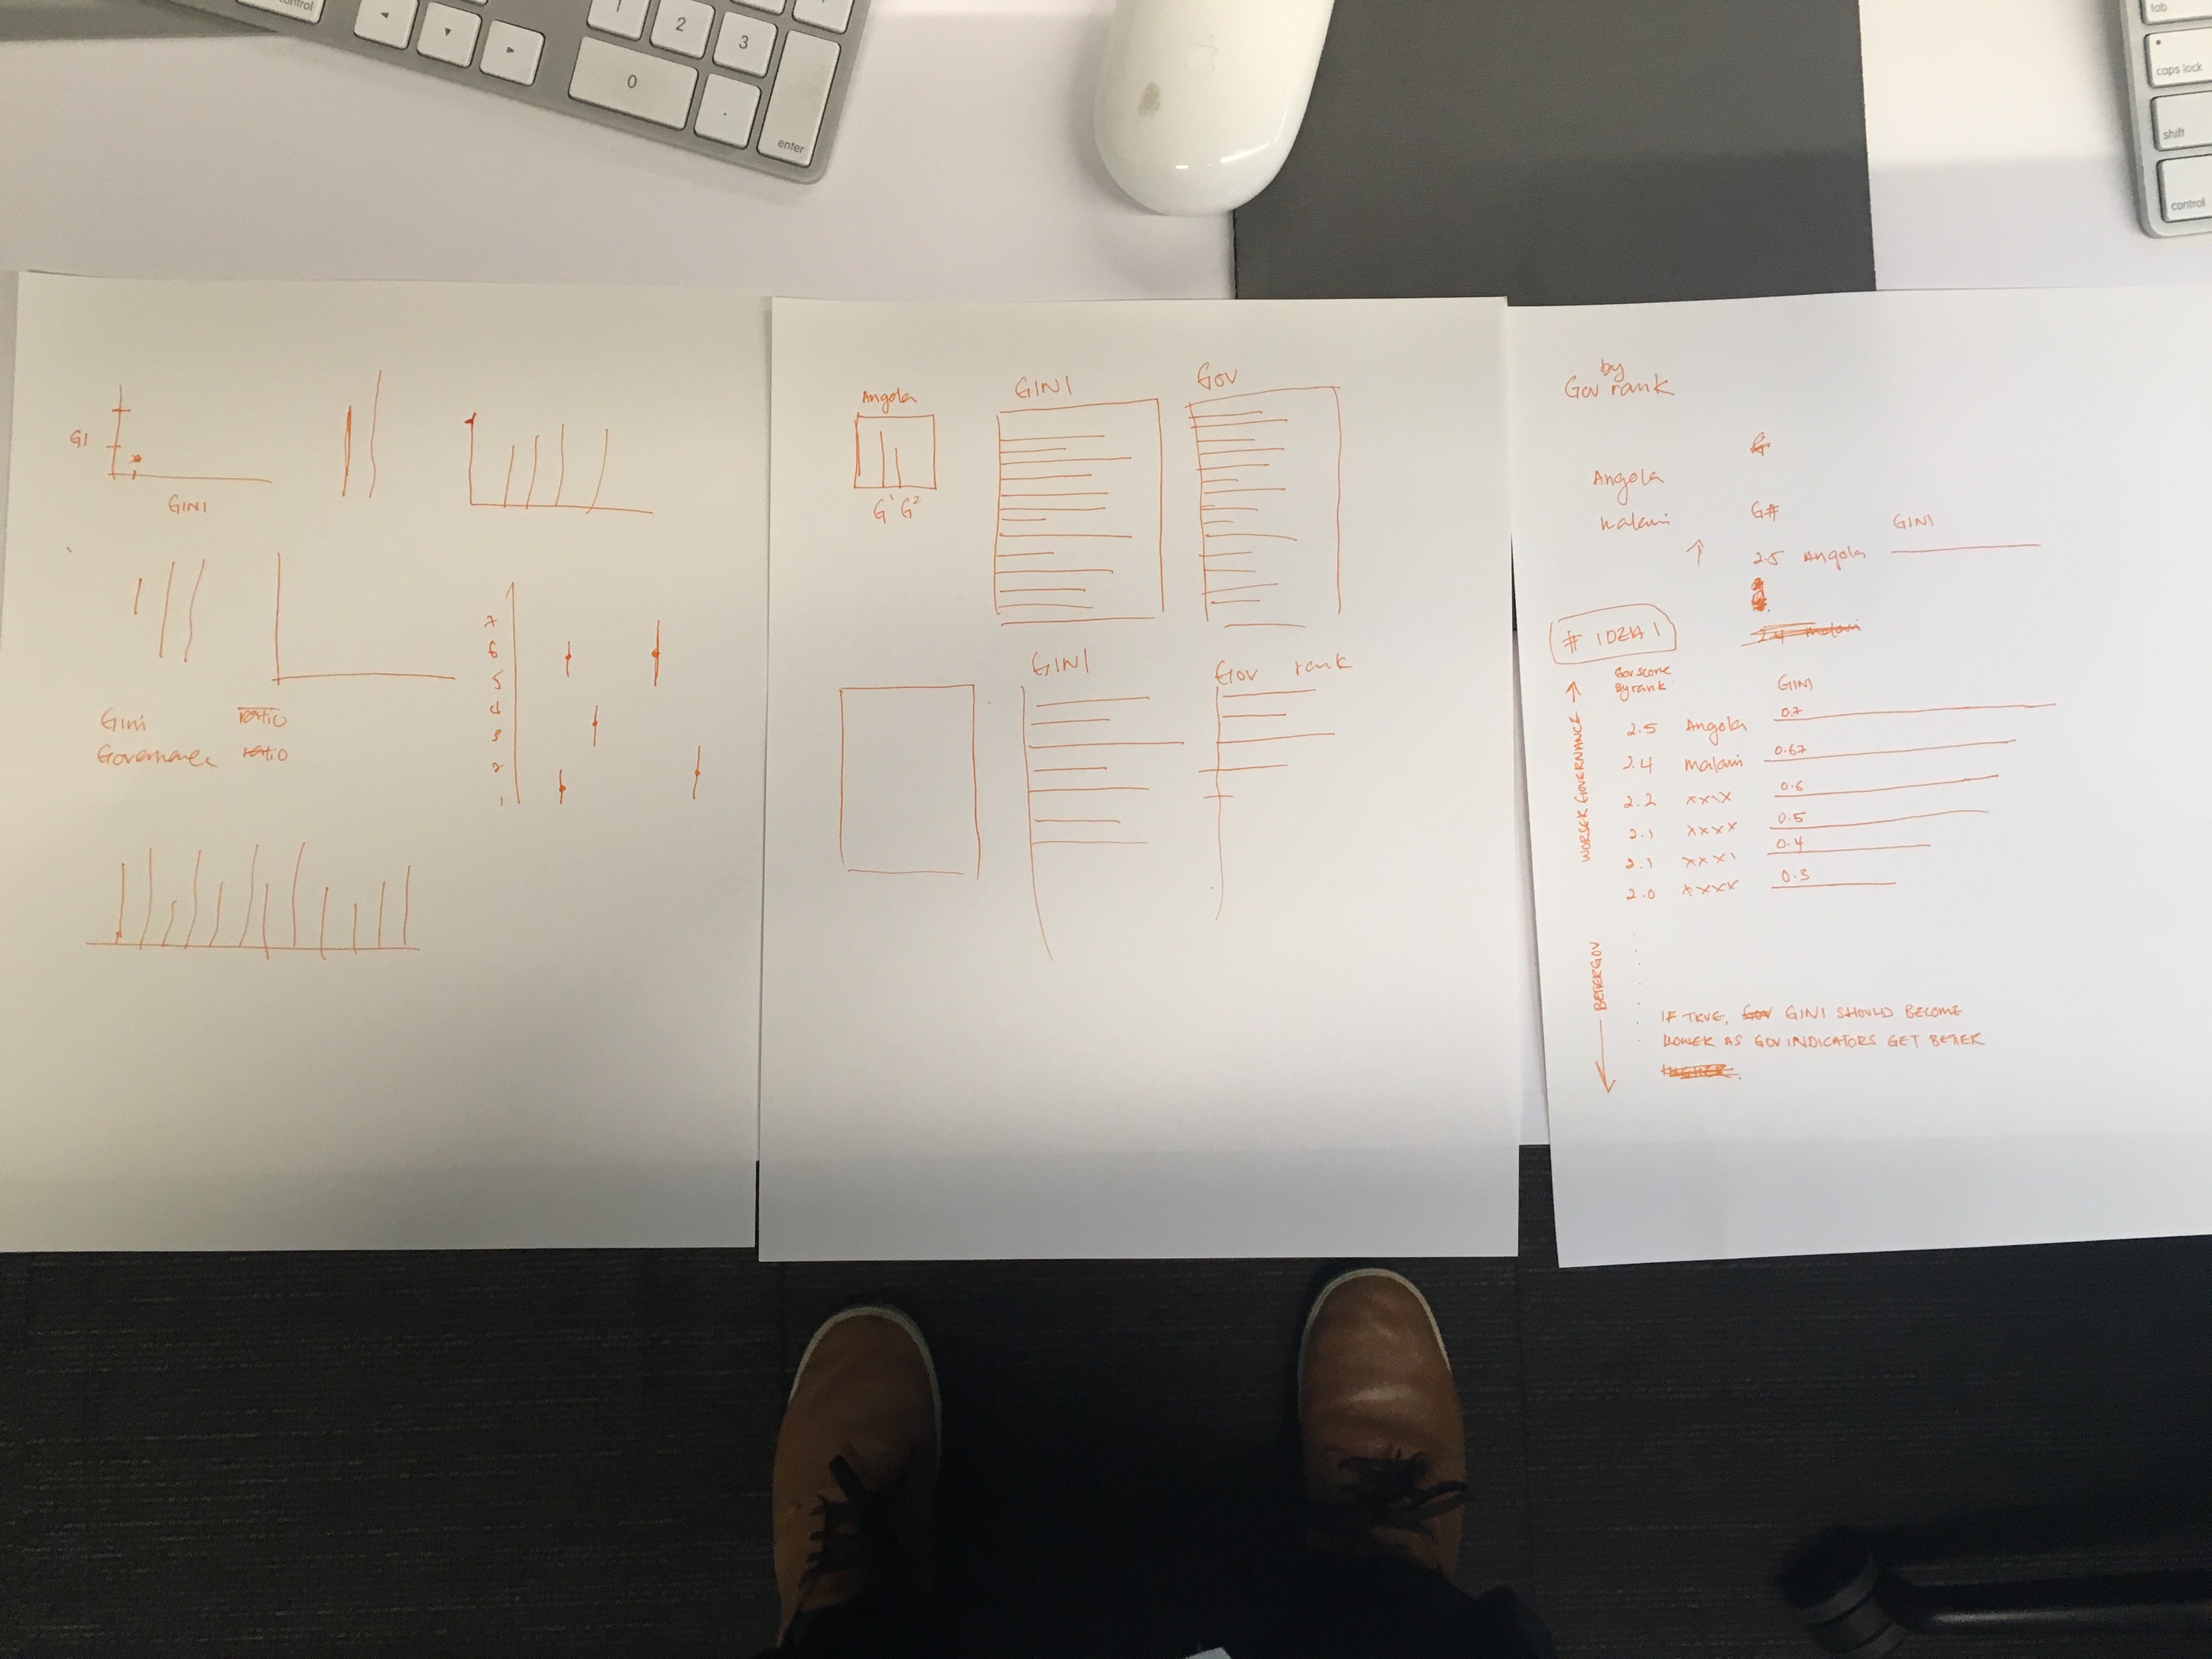 control
1
2
3
0
.
enter
tab
caps lock
shift
control
G1
GINI
Gini ratio
Governance ratio
7
6
5
4
3
2
1
Angola
G1 G2
GINI
Gov
GINI
Gov rank
by
Gov rank
G
Angola
malawi
G#
GINI
2.5 Angola
2.4 malawi
# IDEA 1
Gov score
By rank
GINI
2.5 Angola 0.7
2.4 malawi 0.67
2.2 xxxx 0.6
2.1 xxxx 0.5
2.1 xxxx 0.4
2.0 xxxx 0.3
WORSER GOVERNANCE
BETTER GOV
IF TRUE, GOV GINI SHOULD BECOME
LOWER AS GOV INDICATORS GET BETTER
HIGHER.